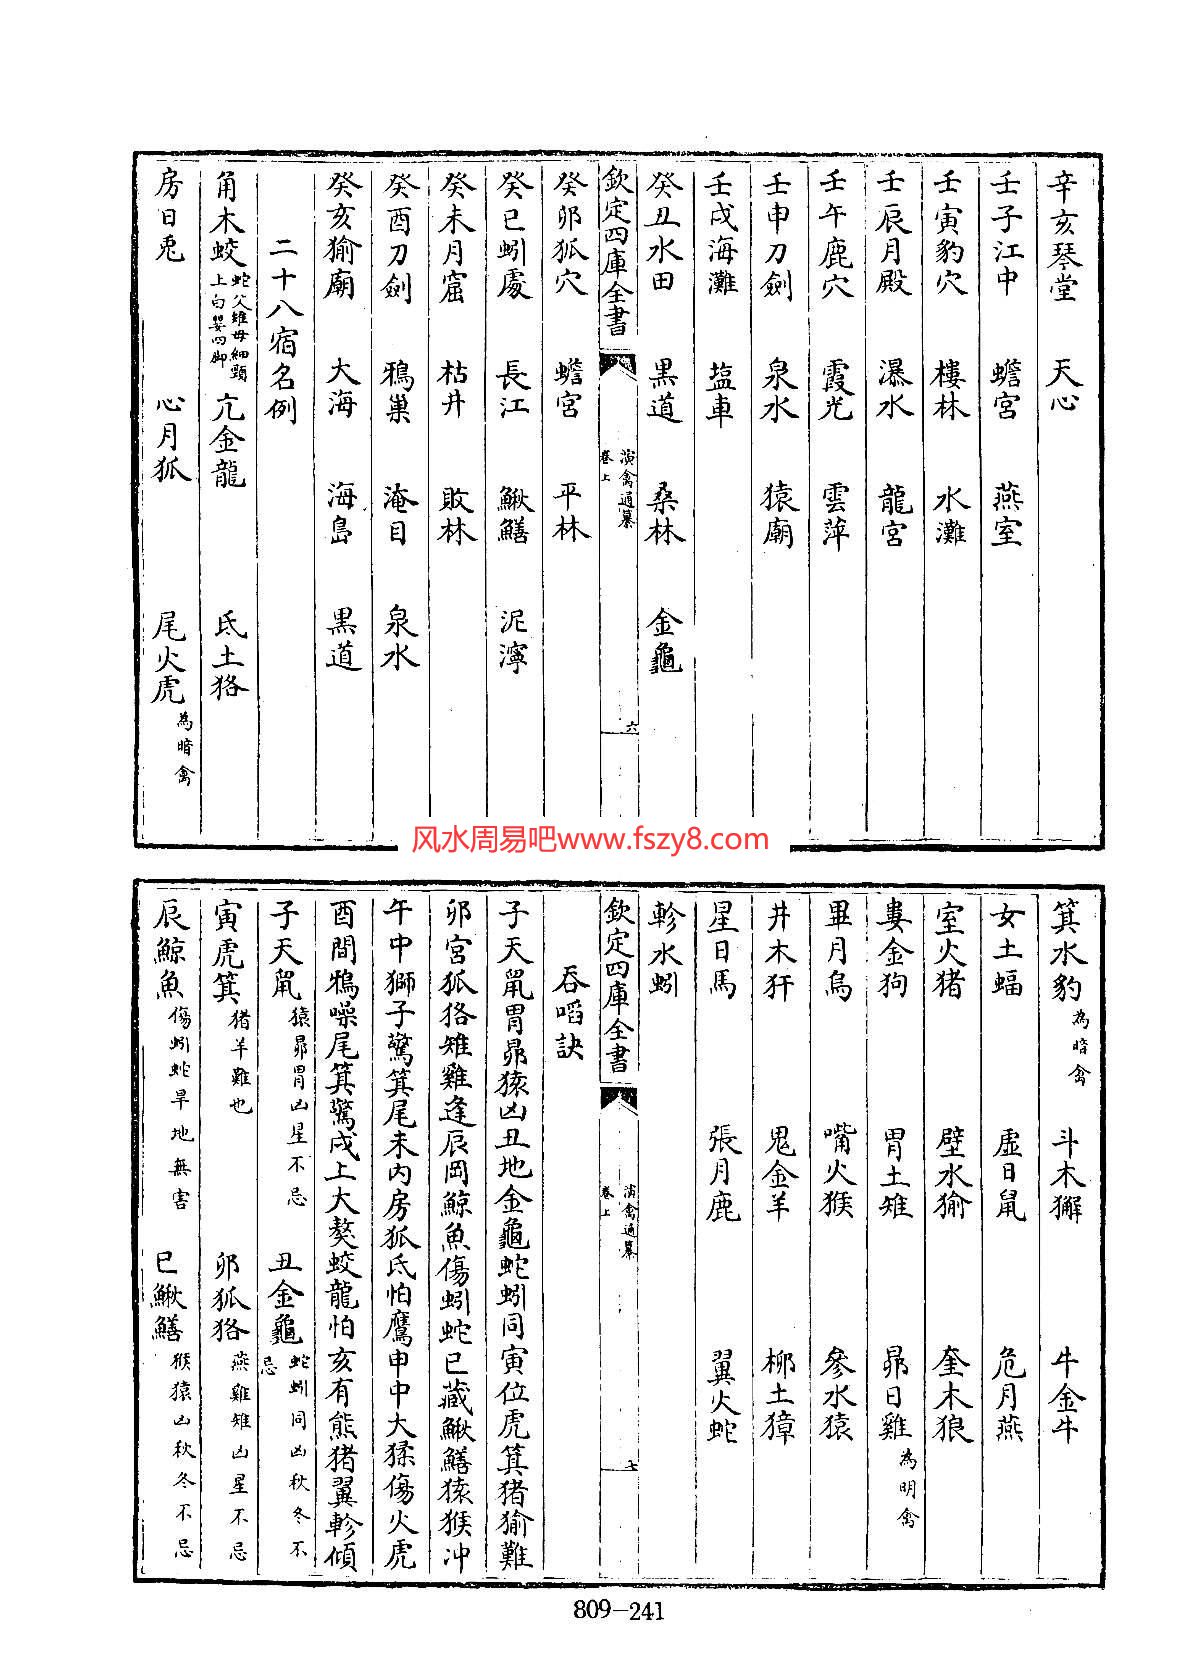 辛亥琴堂 天心
壬子江中 蟾宫 燕室
壬寅豹穴 樓林 水灘
壬辰月殿 瀑水 龍宫
壬午鹿穴 霞光 雲萍
壬申刀劍 泉水 猿廟
壬戌海灘 塩車
癸丑水田 黒道 桑林 金龜
欽定四庫全書 演禽通纂 卷上 六
癸卯狐穴 蟾宫 平林
癸巳蚓處 長江 鰍鱔 泥濘
癸未月窟 枯井 敗林
癸酉刀劍 鴉巢 淹目 泉水
癸亥㺄廟 大海 海島 黒道
二十八宿名例
角木蛟 蛇父雉母細頸上白嬰四脚 亢金龍 氐土狢
房日兎 心月狐 尾火虎 為暗禽
风水周易吧www.fszy8.com
箕水豹 為暗禽 斗木獬 牛金牛
女土蝠 虚日鼠 危月燕
室火猪 壁水㺄 奎木狼
婁金狗 胃土雉 昴日雞 為明禽
畢月烏 嘴火猴 參水猿
井木犴 鬼金羊 柳土獐
星日馬 張月鹿 翼火蛇
軫水蚓
欽定四庫全書 演禽通纂 卷上 七
吞啗訣
子天鼠胃昴猿凶丑地金龜蛇蚓同寅位虎箕猪㺄難
卯宫狐狢雉雞逢辰岡鯨魚傷蚓蛇巳藏鰍鱔猿猴冲
午中獅子驚箕尾未内房狐氐怕鷹申中大猱傷火虎
酉間鴉噪尾箕驚戌上大獒蛟龍怕亥有熊猪翼軫傾
子天鼠 猿昴胃凶星不忌 丑金龜 蛇蚓同凶秋冬不忌
寅虎箕 猪羊難也 卯狐狢 燕雞雉凶星不忌
辰鯨魚 傷蚓蛇旱地無害 巳鰍鱔 猴猿凶秋冬不忌
809-241